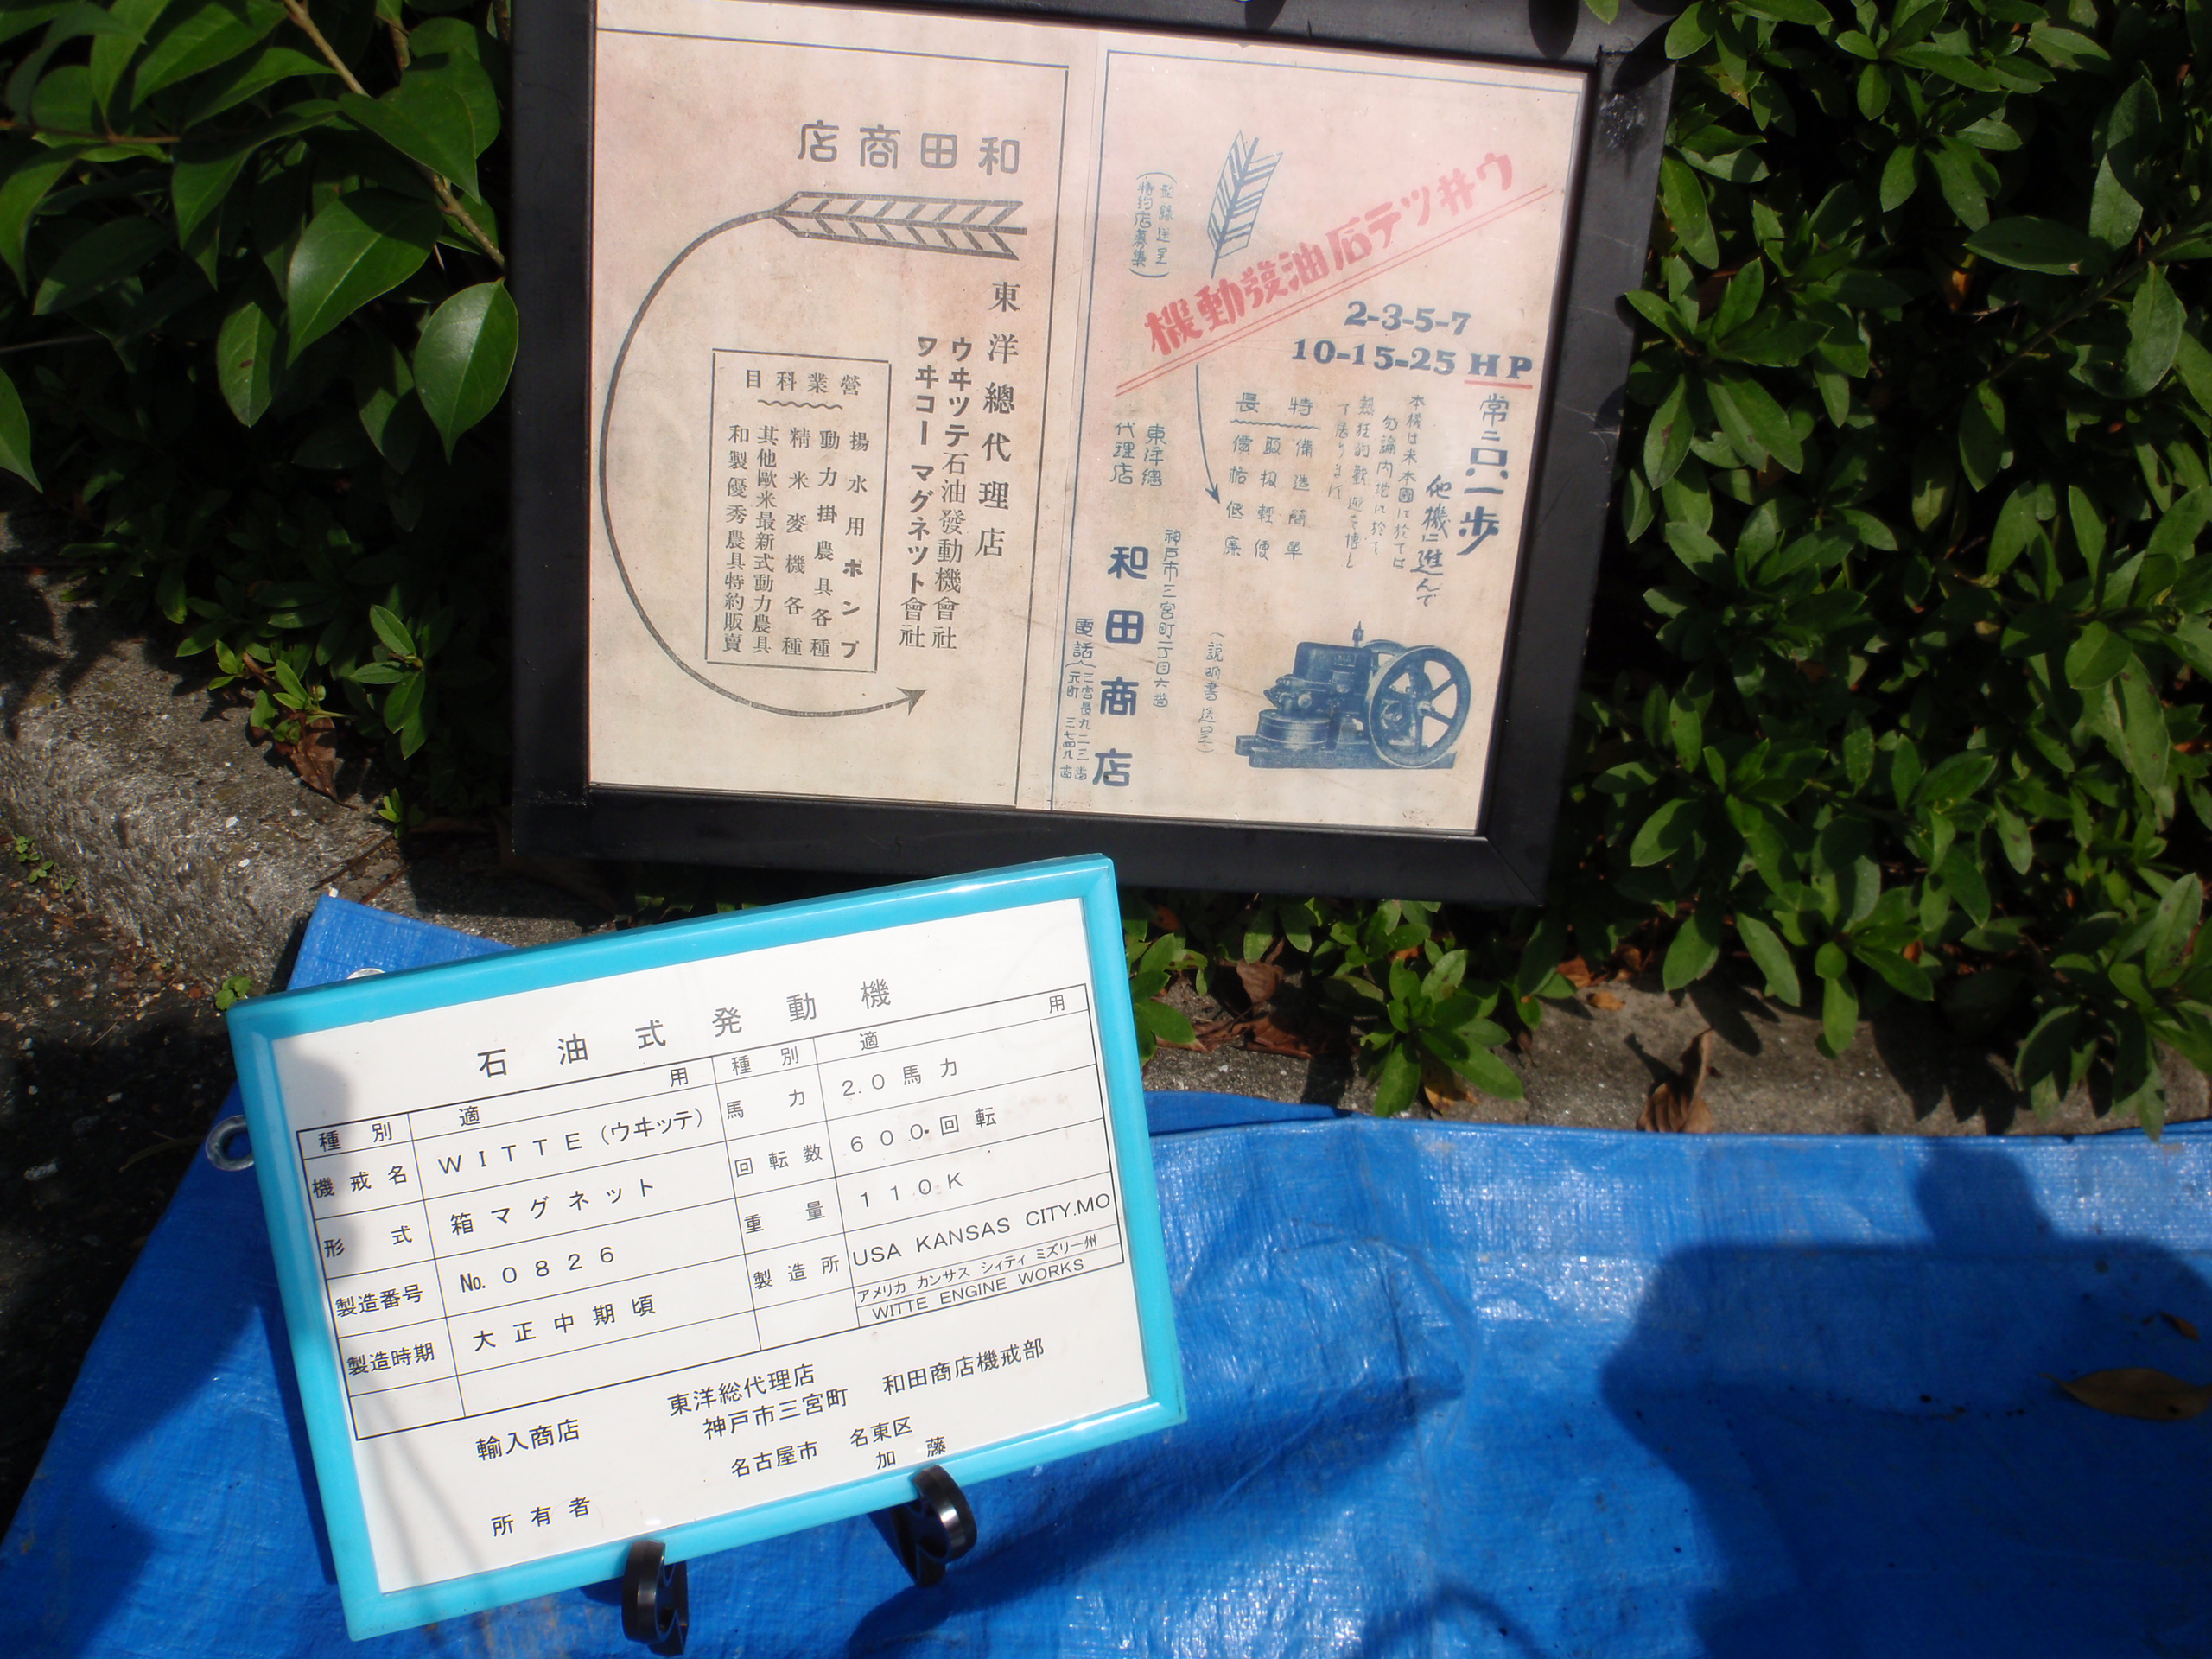 和田商店
東洋總代理店
ウヰッテ石油發動機會社
ワヰコーマグネット會社
營業科目
揚水用ポンプ
動力掛農具各種
精米麥機各種
其他歐米最新式動力農具
和製優秀農具特約販賣
ウヰッテ石油發動機
2-3-5-7
10-15-25 HP
常ニ只一歩
他機に進んで
本機は米本國に於ては
勿論内地に於て
熱狂的歓迎を博し
て居ります
特長
備造簡單
取扱輕便
價格低廉
(説明書送呈)
型録送呈
特約店募集
東洋總
代理店
神戸市三宮町一丁目六番
和田商店
電話
石油式発動機
種別 適用 種別 適用
機戒名 WITTE(ウヰッテ) 馬力 2.0馬力
形式 箱マグネット 回転数 600.回転
製造番号 №.0826 重量 110K
製造時期 大正中期頃 製造所 USA KANSAS CITY.MO
アメリカ カンサス シィティ ミズリー州
WITTE ENGINE WORKS
輸入商店 東洋総代理店
神戸市三宮町 和田商店機戒部
所有者 名古屋市 名東区
加藤